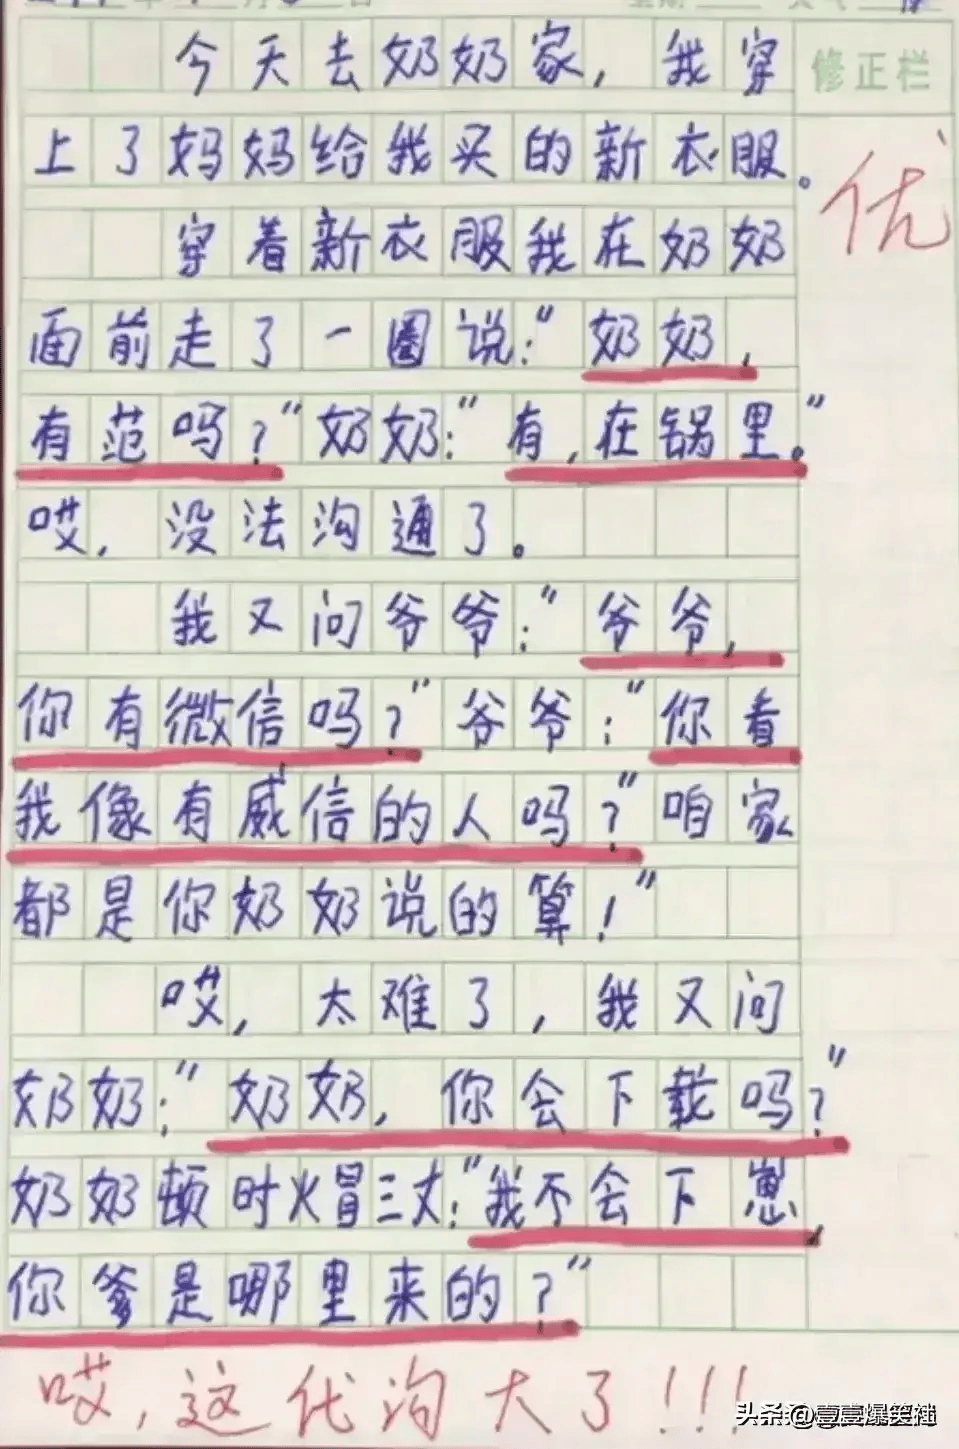 今天去奶奶家,我穿
修正栏
上了妈妈给我买的新衣服。
优
穿着新衣服我在奶奶
面前走了一圈说:“奶奶,
有范吗?”奶奶:“有,在锅里。”
哎,没法沟通了。
我又问爷爷:“爷爷,
你有微信吗?”爷爷:“你看
我像有威信的人吗?”咱家
都是你奶奶说的算!”
哎,太难了,我又问
奶奶:“奶奶,你会下载吗?”
奶奶顿时火冒三丈:“我不会下崽,
你爹是哪里来的?”
哎,这代沟大了!!!
头条@壹壹爆笑社